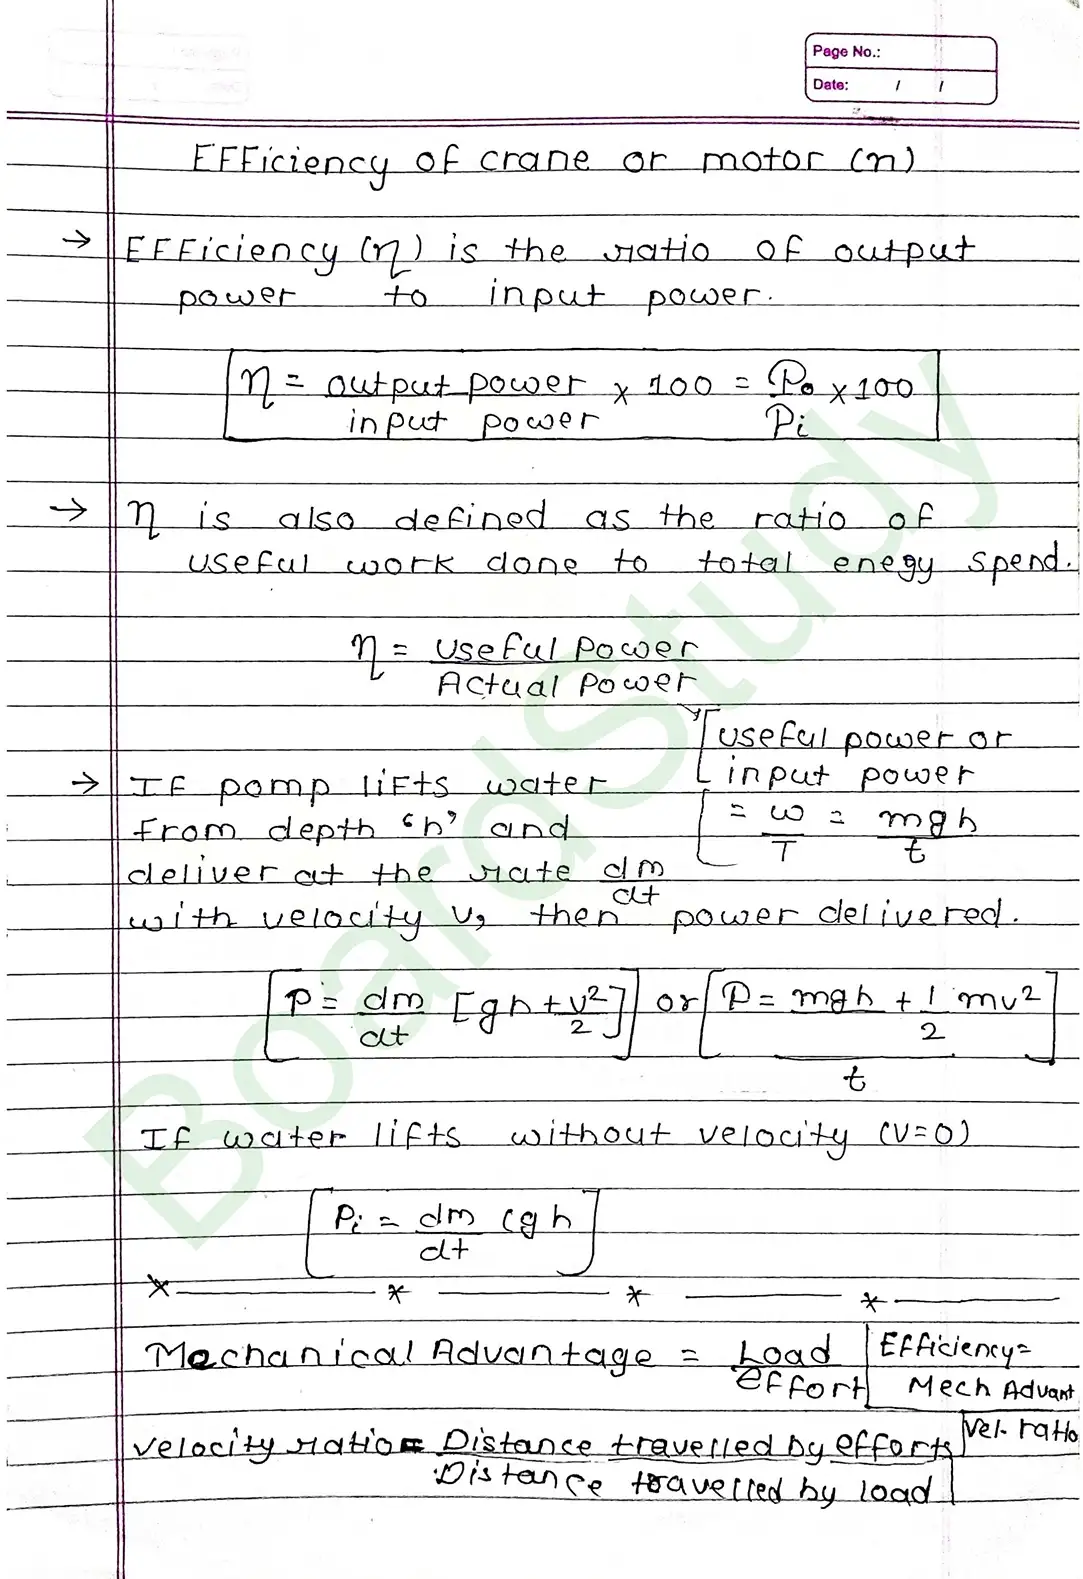 Page No.:
Date: / /
Efficiency of crane or motor (n)
→ Efficiency (η) is the ratio of output
power to input power.
η = output power / input power × 100 = Po / Pi × 100
→ η is also defined as the ratio of
useful work done to total enegy spend.
η = Useful Power / Actual Power
useful power or
input power
= w/T = mgh/t
→ If pomp lifts water
from depth 'h' and
deliver at the rate dm/dt
with velocity v, then power delivered.
[P = dm/dt [gh + v²/2]] or [P = mgh + 1/2 mv² / t]
If water lifts without velocity (v=0)
[Pi = dm/dt (gh]
× * * *
Mechanical Advantage = Load / effort
Efficiency = Mech Advant / Vel. ratio
velocity ratio = Distance travelled by efforts / Distance travelled by load
BoardStudy